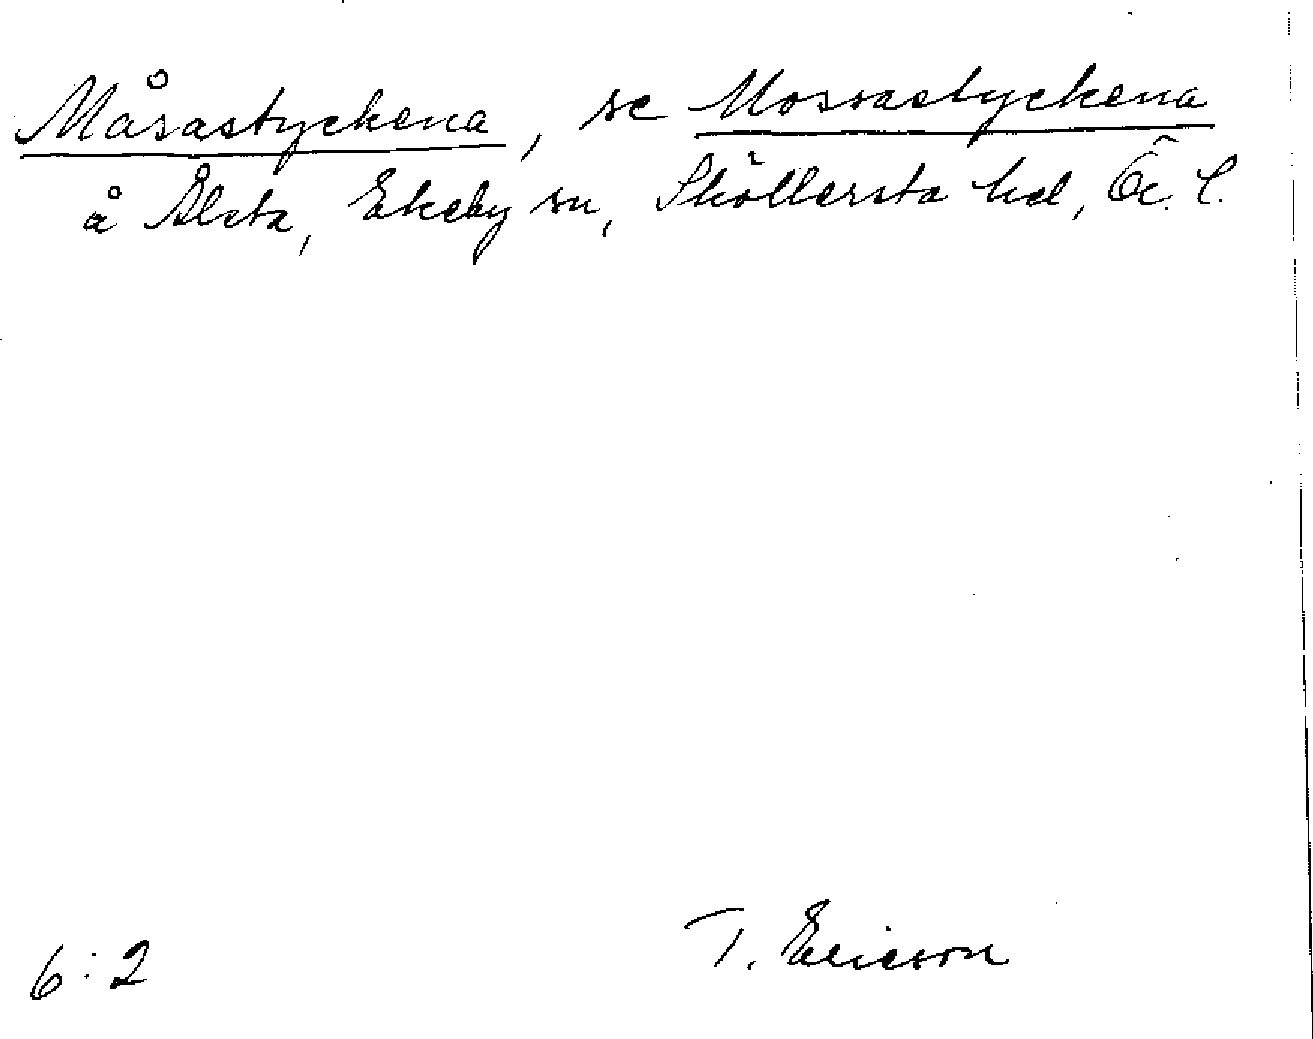 Måsastyckena, se Mossastyckena
å Ålsta, Ekeby sn, Sköllersta hd, Ö. l.
T. Ericson
6:2